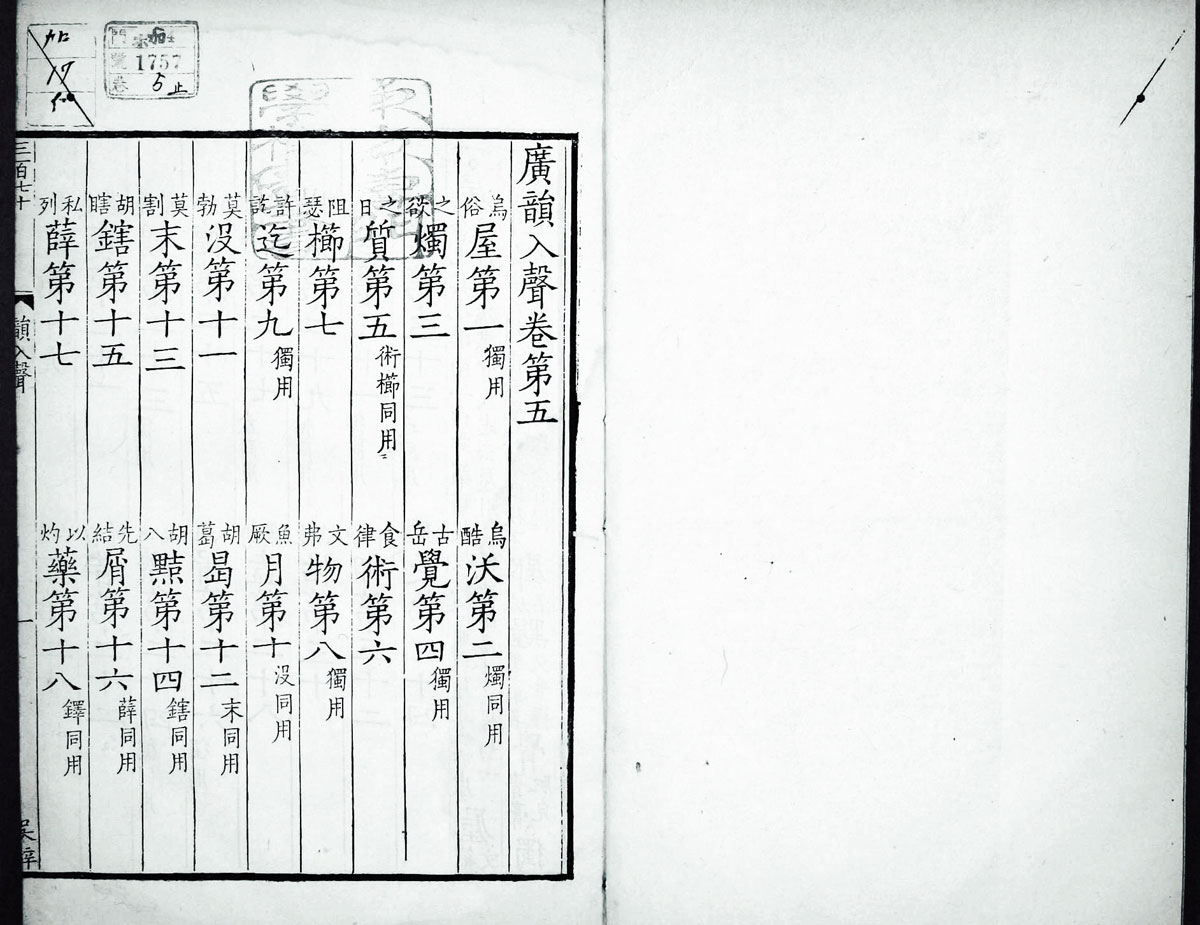 廣韻入聲卷第五
烏俗屋第一獨用
烏酷沃第二燭同用
之欲燭第三
古岳覺第四獨用
之日質第五術櫛同用
食律術第六
阻瑟櫛第七
文弗物第八獨用
許訖迄第九獨用
魚厥月第十没同用
莫勃没第十一
胡葛曷第十二末同用
莫割末第十三
胡八黠第十四鎋同用
胡瞎鎋第十五
先結屑第十六薛同用
私列薛第十七
以灼藥第十八鐸同用
三百七十
韻入聲
一
1757
5止